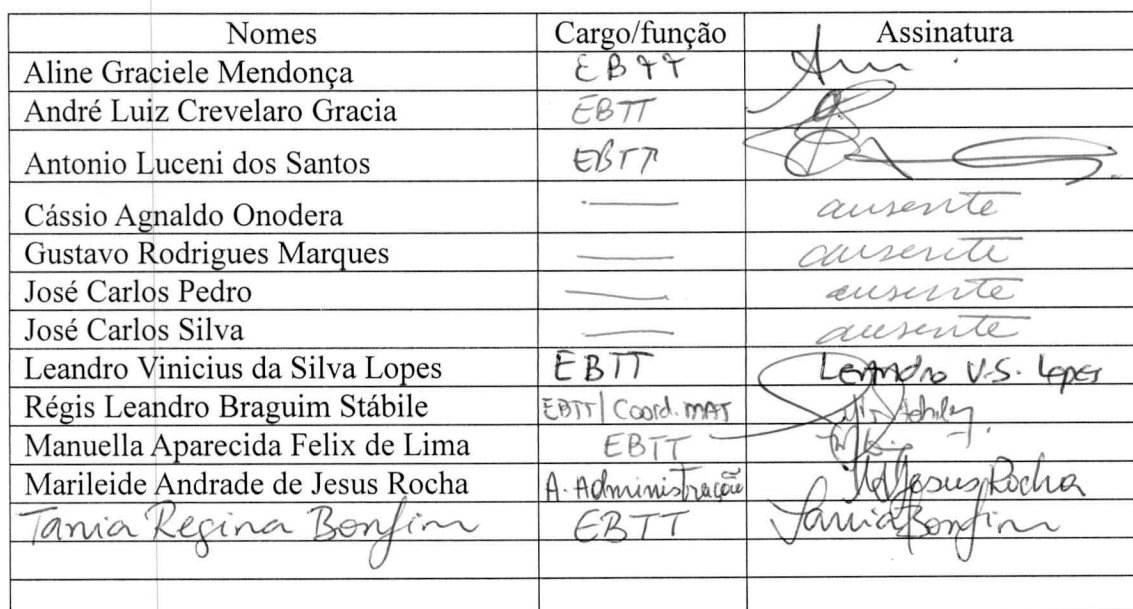 Nomes Cargo/função Assinatura
Aline Graciele Mendonça EBTT
André Luiz Crevelaro Gracia EBTT
Antonio Luceni dos Santos EBTT
Cássio Agnaldo Onodera — ausente
Gustavo Rodrigues Marques — ausente
José Carlos Pedro — ausente
José Carlos Silva — ausente
Leandro Vinicius da Silva Lopes EBTT Leandro V.S. Lopes
Régis Leandro Braguim Stábile EBTT/Coord. MAT
Manuella Aparecida Felix de Lima EBTT
Marileide Andrade de Jesus Rocha A. Administração MJesus Rocha
Tania Regina Bonfim EBTT Tania Bonfim